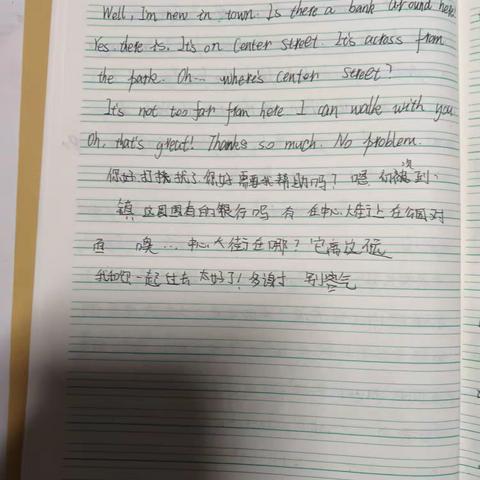 Well, I'm new in town. Is there a bank around here
Yes there is. It's on Center street. It's across from
the park. Oh... where's center street?
It's not too far from here I can walk with you
Oh, that's great! Thanks so much. No problem.
你好 打扰了 你好 需要我帮助吗? 嗯 到
镇 这周围有的银行吗 有 在中心大街上 在公园对
面 噢... 中心大街在哪? 它离这不远
我和你一起过去 太好了! 多谢 别客气